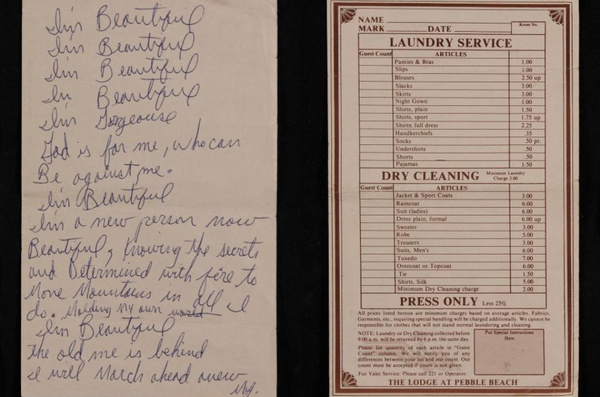 I'm Beautiful
I'm Beautiful
I'm Beautiful
I'm Beautiful
I'm Gorgeouse
God is for me, who can
Be against me.
I'm Beautiful
I'm a new person now
Beautiful, Knowing the secrets
and Determined with fire to
Move Mountains in all I
do. Molding my own world
I'm Beautiful
The old me is behind
I will March ahead anew
MJ.
NAME
MARK DATE
Room No.
LAUNDRY SERVICE
Guest Count ARTICLES
Panties & Bras 1.00
Slips 1.00
Blouses 2.50 up
Slacks 3.00
Skirts 3.00
Night Gown 1.00
Shirts, plain 1.50
Shirts, sport 1.75 up
Shirts, full dress 2.25
Handkerchiefs .35
Socks .50 pr.
Undershirts .50
Shorts .50
Pajamas 1.50
DRY CLEANING Minimum Laundry Charge 2.00
Guest Count ARTICLES
Jacket & Sport Coats 3.00
Raincoat 6.00
Suit (ladies) 6.00
Dress plain, formal 6.00 up
Sweater 3.00
Robe 5.00
Trousers 3.00
Suits, Men's 6.00
Tuxedo 7.00
Overcoat or Topcoat 6.00
Tie 1.50
Shirts, Silk 5.00
Minimum Dry Cleaning charge 2.00
PRESS ONLY Less 25%
All prices listed hereon are minimum charges based on average articles. Fabrics,
Garments, etc., requiring special handling will be charged additionally. We cannot be
responsible for clothes that will not stand normal laundering and cleaning.
NOTE: Laundry or Dry Cleaning collected before
9:00 a.m. will be returned by 6 p.m. the same day.
Please list quantity of each article in "Guest
Count" column. We will notify you of any
difference between your list and our count. Our
count must be accepted if yours is not given.
For Valet Service: Please call 221 or Operator.
Put Special Instructions
Here
THE LODGE AT PEBBLE BEACH